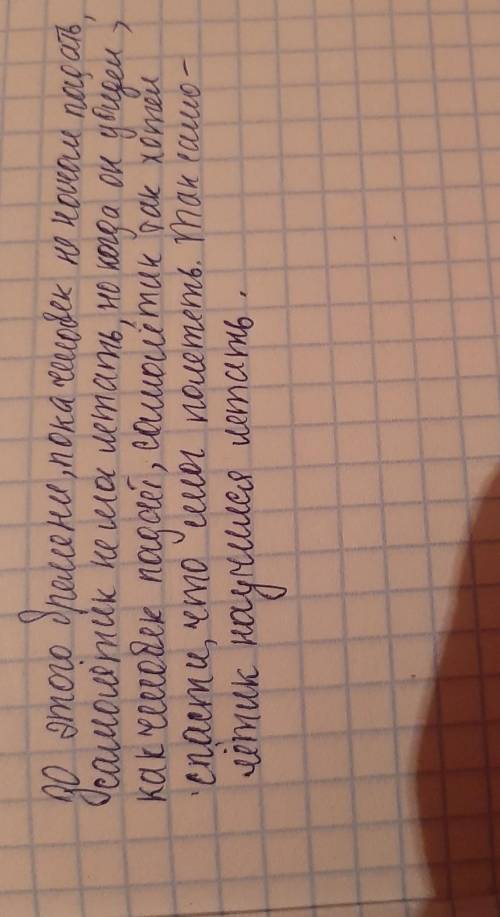 До этого времени, пока человек не начал падать,
самолётик не мга летать, но когда он увидел,
как человек падает, самолётик так хотел
спасти, что смог полететь. Так само-
лётик научился летать.